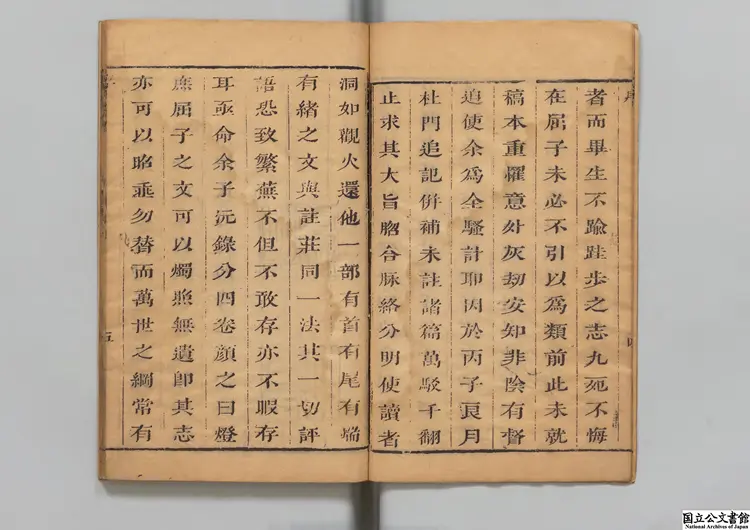 者而畢生不踰跬步之志九死不悔
在屈子未必不引以為類前此未就
稿本重罹意外灰刼安知非陰有督
迫使余為全騷計耶因於丙子良月
杜門追記併補未註諸篇萬駁千翻
止求其大旨脗合脉絡分明使讀者
洞如觀火還他一部有首有尾有端
有緒之文與註莊同一法其一切評
語恐致繁蕪不但不敢存亦不暇存
耳亟命余子沅錄分四卷顏之曰燈
庶屈子之文可以燭照無遺卽其志
亦可以昭垂勿替而萬世之綱常有
五
国立公文書館
National Archives of Japan